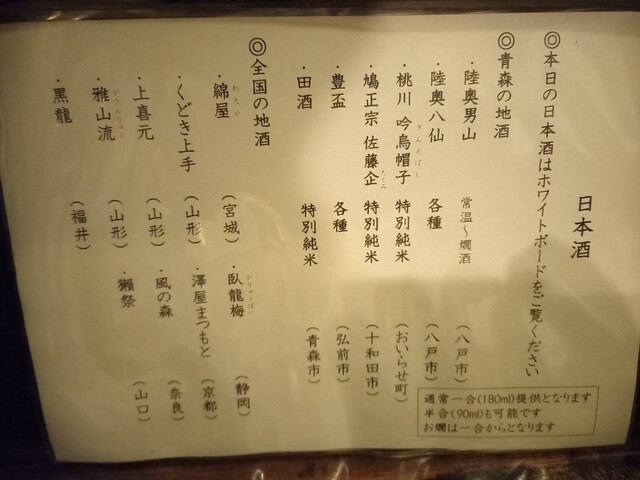 日本酒
◎本日の日本酒はホワイトボードをご覧ください
◎青森の地酒
・陸奥男山 常温～燗酒 （八戸市）
・陸奥八仙 各種 （八戸市）
・桃川 吟烏帽子 特別純米 （おいらせ町）
ぎんえぼし
・鳩正宗 佐藤企 特別純米 （十和田市）
たくみ
・豊盃 各種 （弘前市）
・田酒 特別純米 （青森市）
◎全国の地酒
・綿屋 （宮城） ・臥龍梅 （静岡）
わたや がりゅうばい
・くどき上手 （山形） ・澤屋まつもと （京都）
・上喜元 （山形） ・風の森 （奈良）
・雅山流 （山形） ・獺祭 （山口）
がさんりゅう
・黒龍 （福井）
通常一合(180ml)提供となります
半合(90ml)も可能です
お燗は一合からとなります